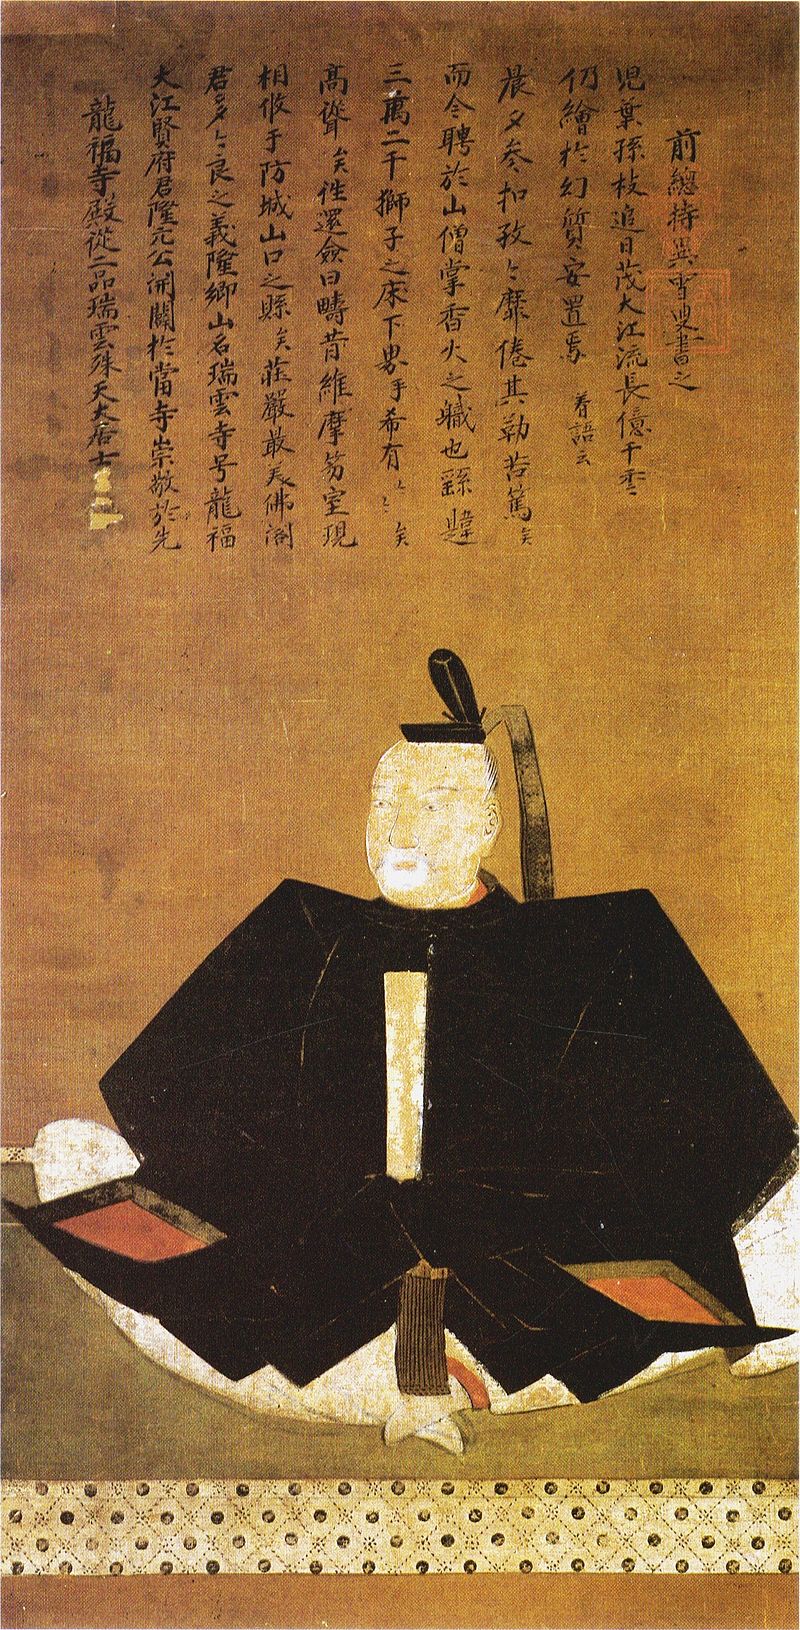 龍福寺殿從二品瑞雲珠天大居士
大江賢府君隆元公開闢於當寺崇敬於先
君多々良之義隆卿山名瑞雲寺号龍福
相攸于防城山口之縣矣莊嚴最矣佛閣
高聳矣性還僉曰疇昔維摩芴室現
三萬二千獅子之床下界乎希有々々矣
而今聘於山僧掌香火之職也繇韙
晨夕参扣孜々靡倦其勤苦篤矣
仍繪於幻質安置焉 着語云
児葉孫枝追日茂大江流長億千
前總持異雪叟書之